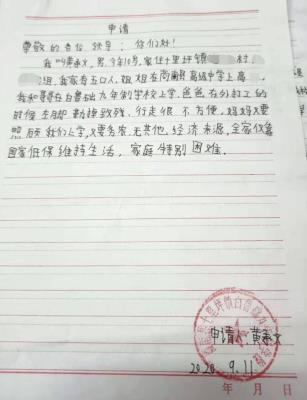 申请
尊敬的各位领导：你们好！
我叫黄承文，男，今年10岁，家住十里坪镇 村，
组，我家有五口人，姐姐在商南县高级中学上高
我和哥哥在白鲁础九年制学校上学，爸爸在外打工的
时候左脚 致残，行走很不方便，妈妈又要
照顾我们上学，又要务农，无其他经济来源，全家仅靠
国家低保维持生活，家庭特别困难。
十里坪镇白鲁础
申请人 黄承文
2020. 9. 11
年 月 日